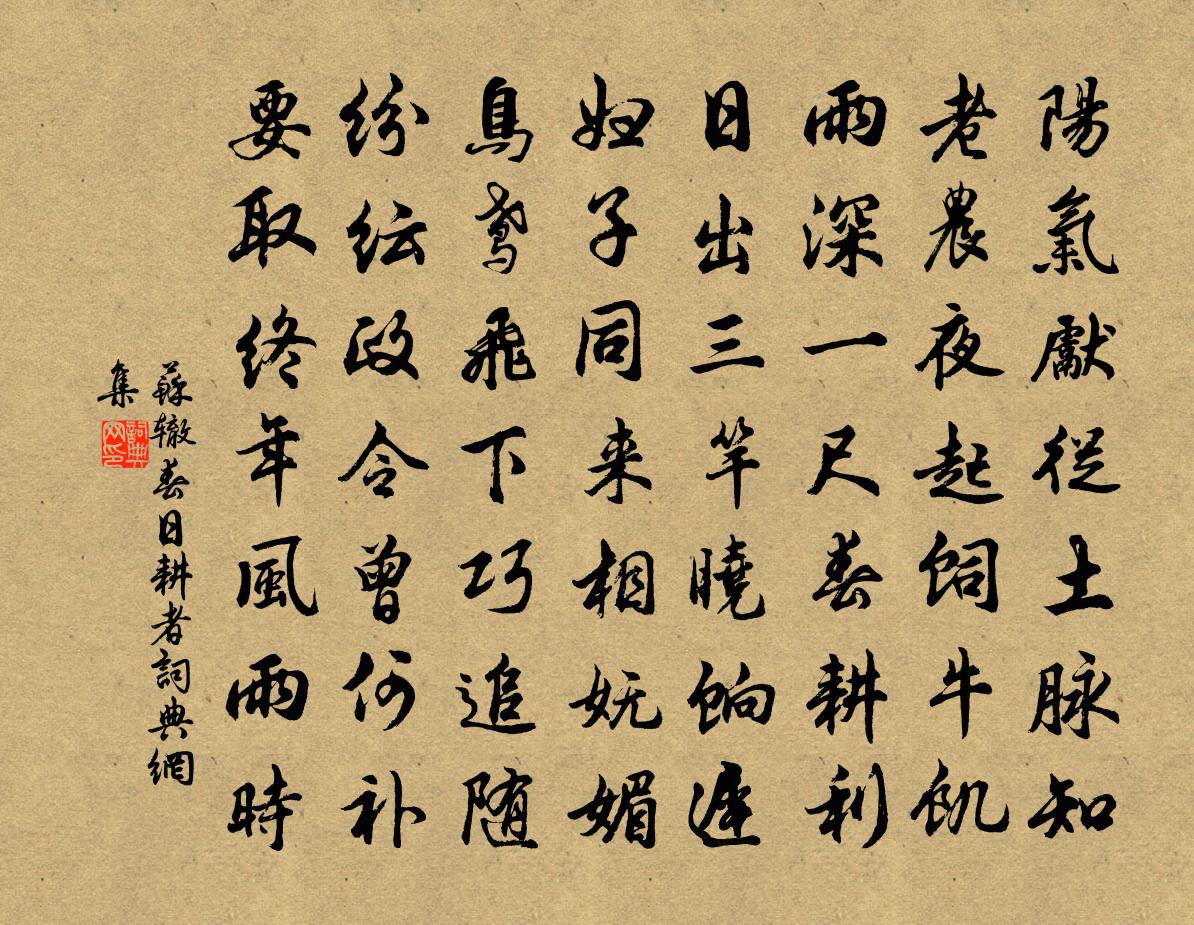 陽氣獻從土脉知
老農夜起飼牛飢
雨深一尺春耕利
日出三竿曉餉遲
妇子同来相妩媚
鳥鳶飛下巧追随
紛紜政令曾何补
要取終年風雨時
蘇辙春日耕者詞典網
集
詞典
网印